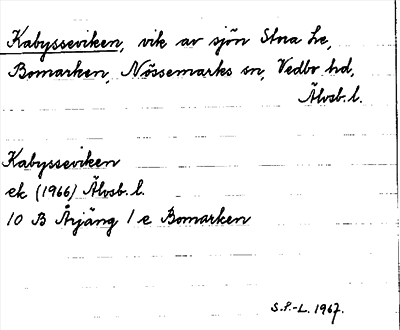 Kabysseviken, vik av sjön Stora Le,
Bomarken, Nössemarks sn, Vedbo hd,
Älvsb. l.
Kabysseviken
ek (1966) Älvsb. l.
10 B Årjäng 1 e Bomarken
S.P.-L. 1967.